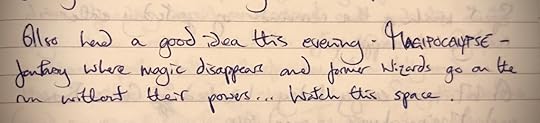 Also had a good idea this evening - MAGIPOCALYPSE -
fantasy where magic disappears and former wizards go on the
run without their powers... Watch this space.